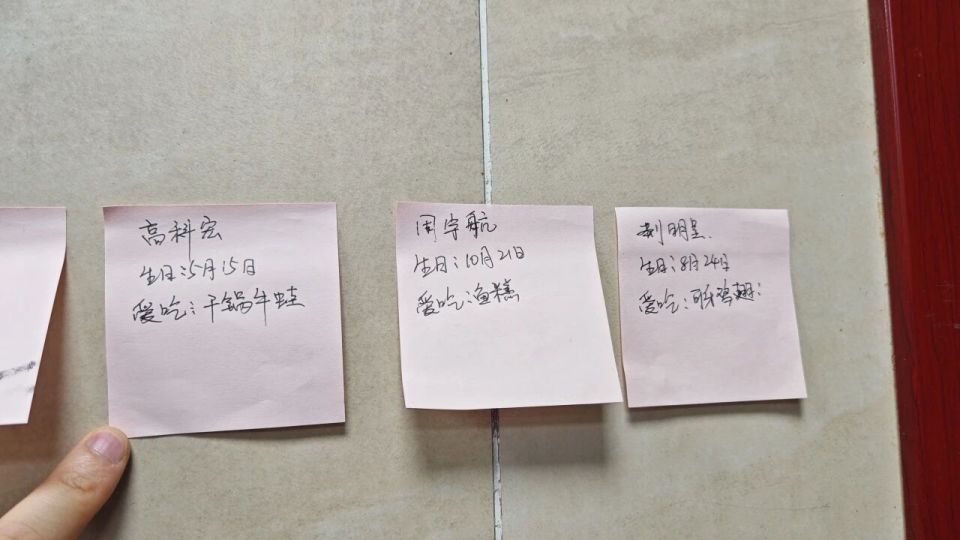 高科宏
生日:5月15日
爱吃:干锅牛蛙
周宇航
生日:10月21日
爱吃:渔糕
明星
生日:8月24日
爱吃:鸡翅